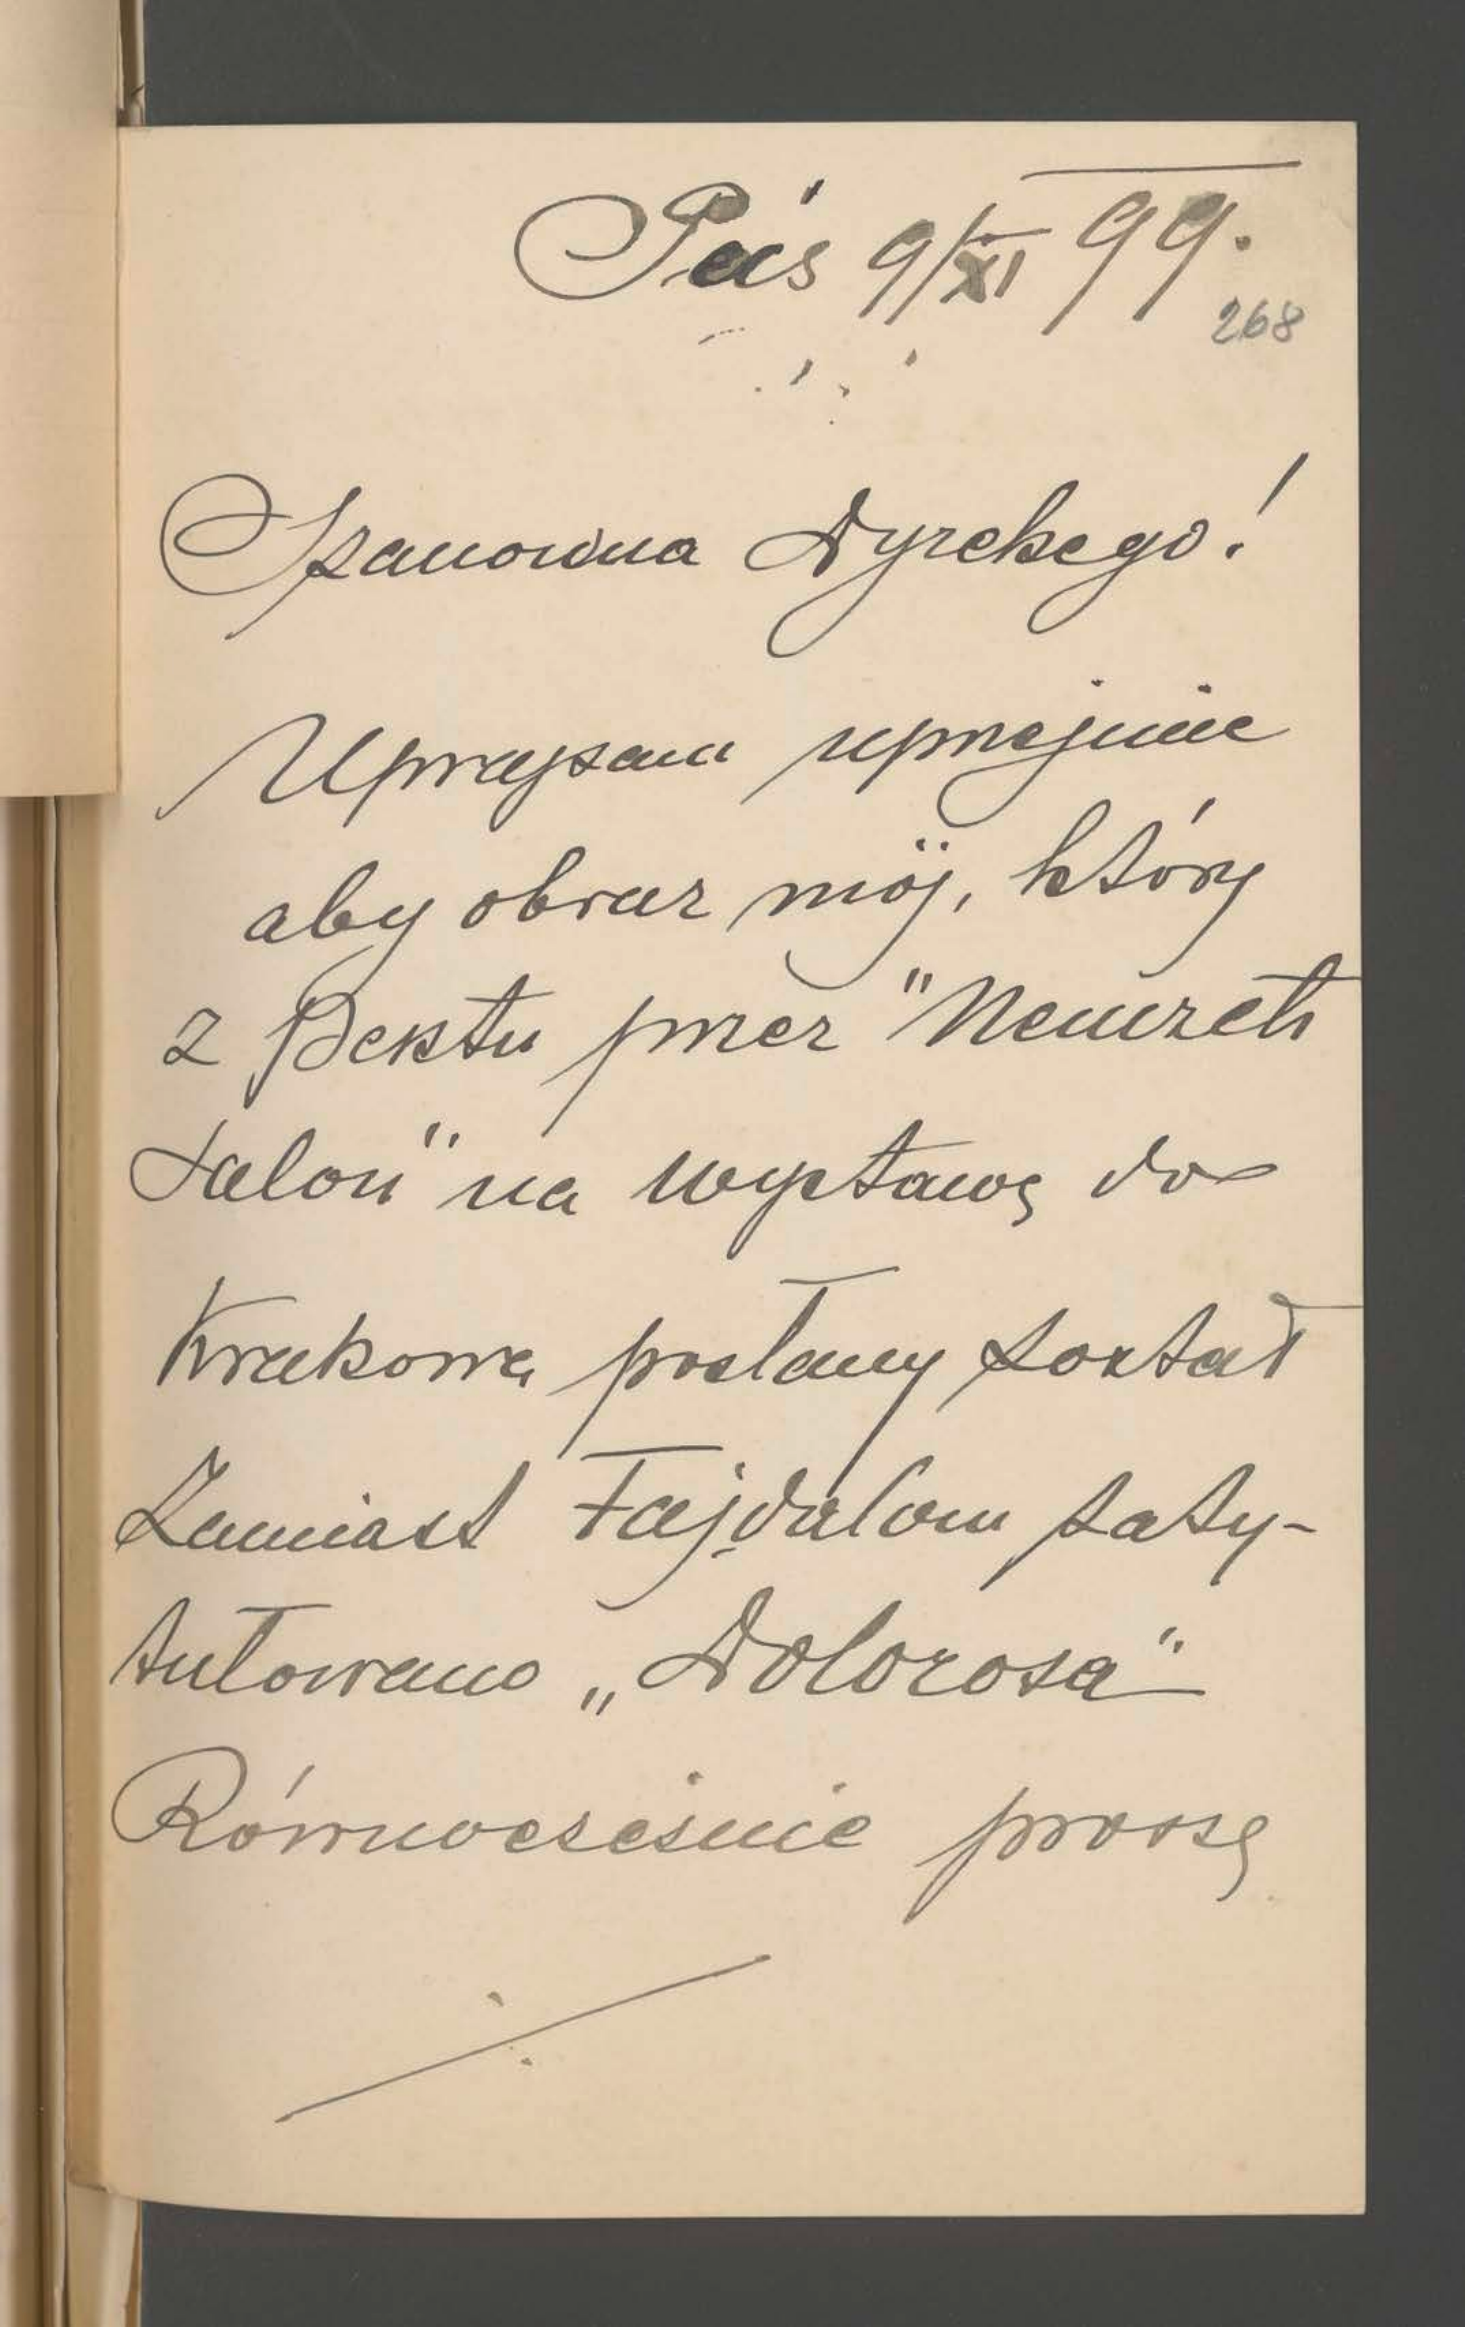 Pécs 9/XI 99.
268
Szanowna Dyrekcyo!
Upraszam uprzejmie
aby obraz mój, który
z Pesztu przez "Nemzeti
Salon" na wystawę do
Krakowa posłany został
Zamiast Fajdalom zaty-
tułowano „Dolorosa"
Równocześnie proszę